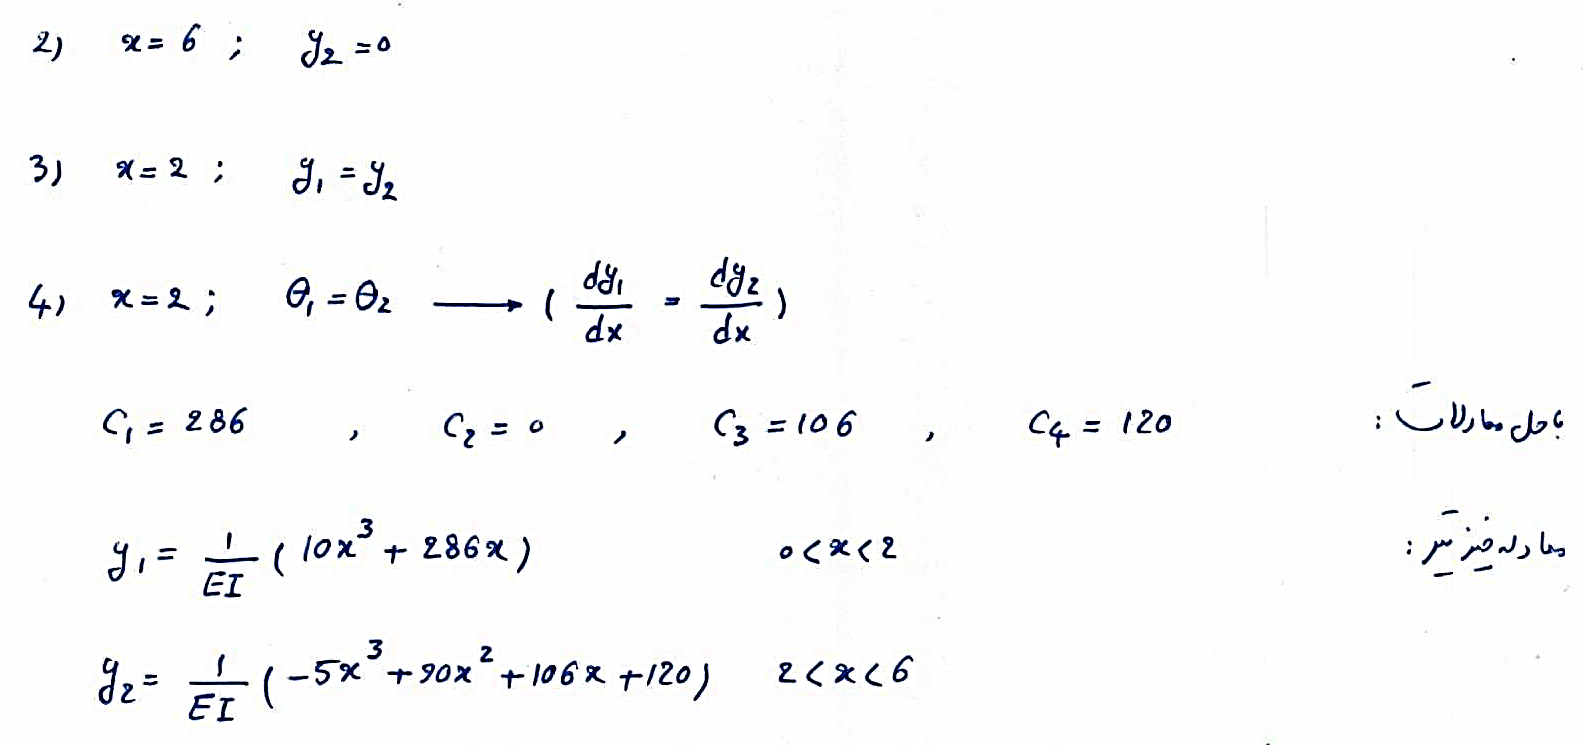 2) x = 6 ; y₂ = 0
3) x = 2 ; y₁ = y₂
4) x = 2 ; θ₁ = θ₂ ⟶ ( dy₁/dx = dy₂/dx )
با حل معادلات : C₁ = 286 , C₂ = 0 , C₃ = 106 , C₄ = 120
معادله خیز تیر : y₁ = 1/EI ( 10x³ + 286x ) 0 < x < 2
y₂ = 1/EI ( -5x³ + 90x² + 106x + 120 ) 2 < x < 6